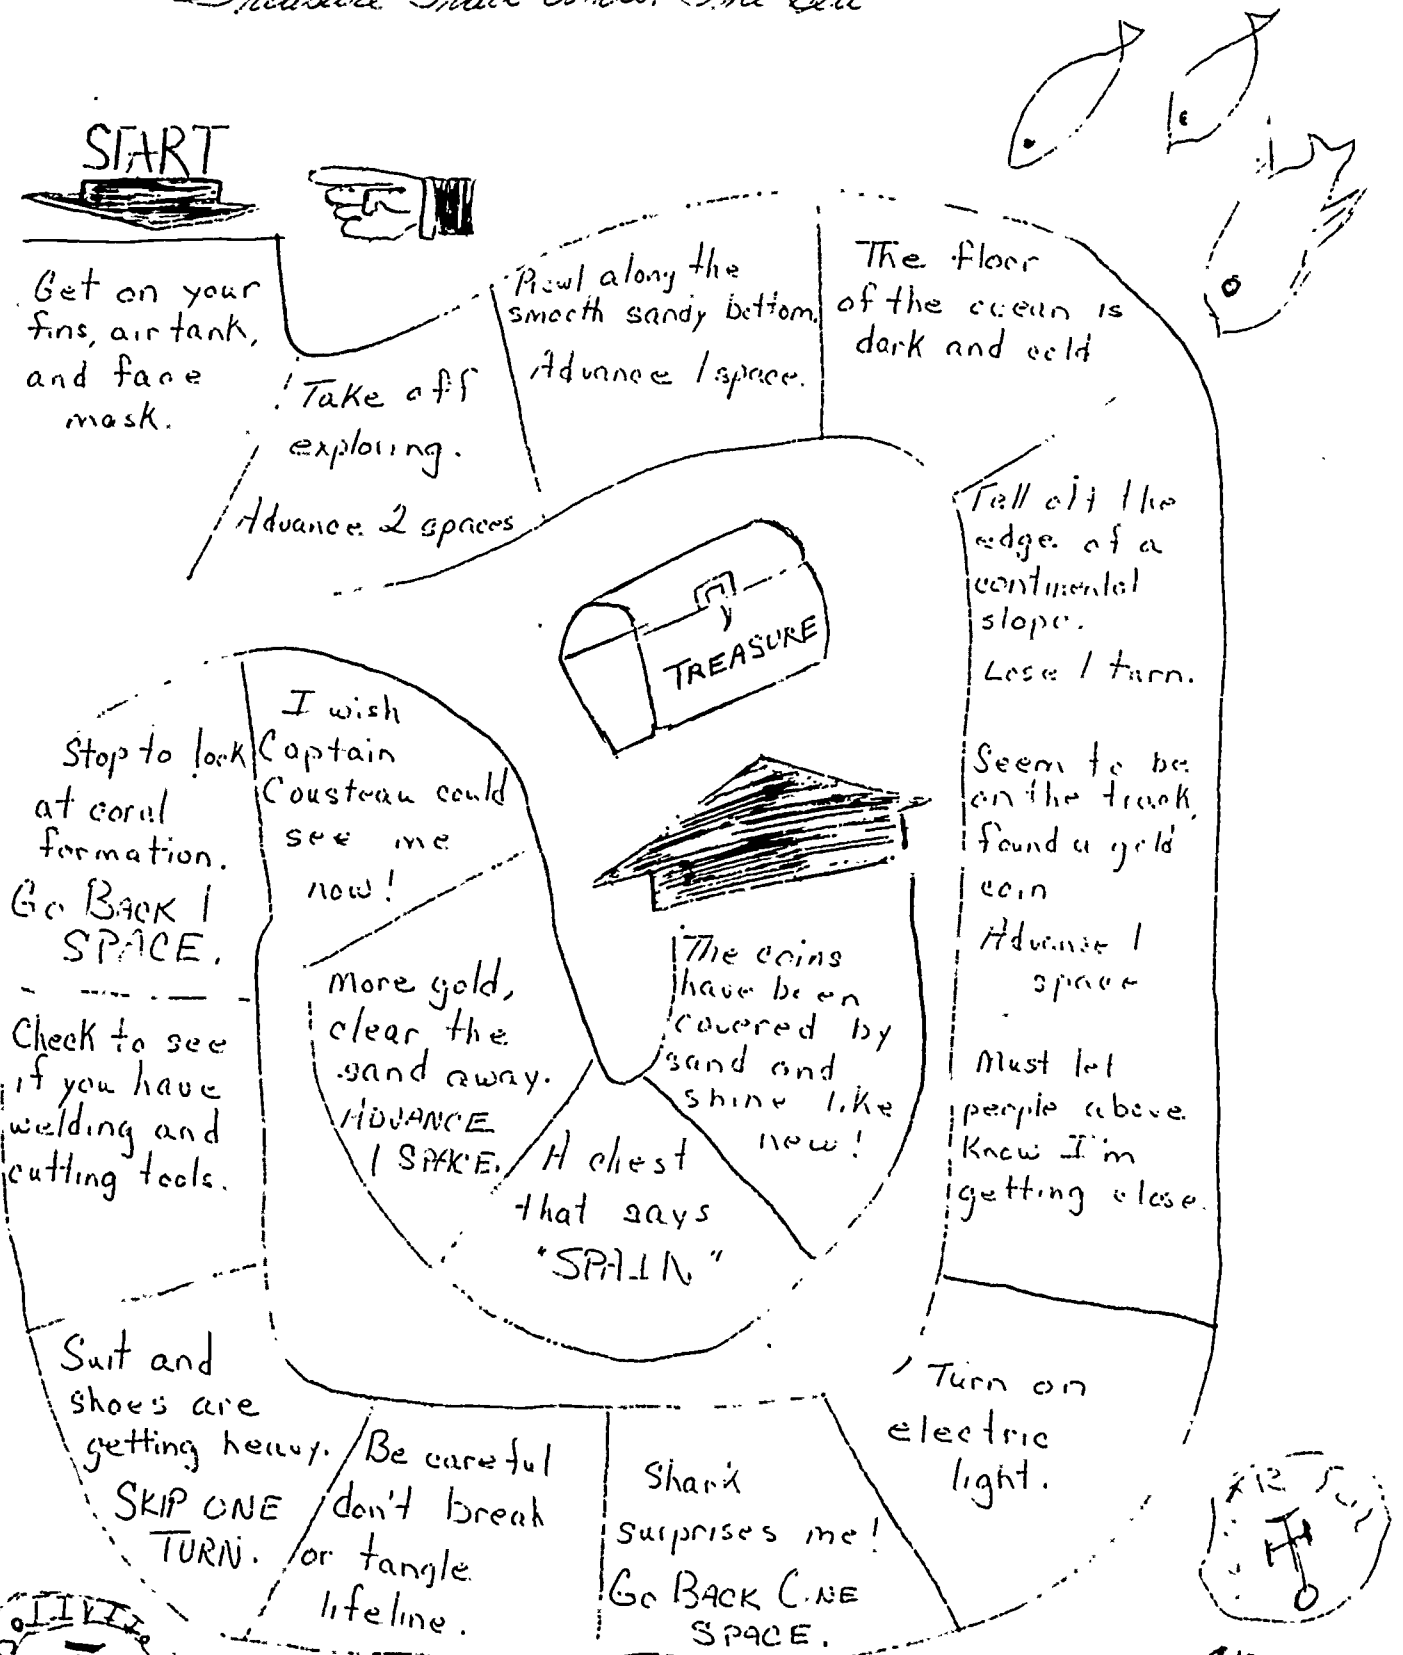 START
Get on your
fins, air tank,
and face
mask.
Take off
exploring.
Advance 2 spaces
Prowl along the
smooth sandy bottom.
Advance 1 space.
The floor
of the ocean is
dark and cold
Fell off the
edge of a
continental
slope.
Lose 1 turn.
Seem to be
on the track,
found a gold
coin
Advance 1
space
Must let
people above
know I'm
getting close.
Turn on
electric
light.
Shark
surprises me!
GO BACK ONE
SPACE.
Be careful
don't break
or tangle
lifeline.
Suit and
shoes are
getting heavy.
SKIP ONE
TURN.
Check to see
if you have
welding and
cutting tools.
Stop to look
at coral
formation.
GO BACK 1
SPACE.
I wish
Captain
Cousteau could
see me
now!
More gold,
clear the
sand away.
ADVANCE
1 SPACE.
A chest
that says
"SPAIN"
The coins
have been
covered by
sand and
shine like
new!
TREASURE